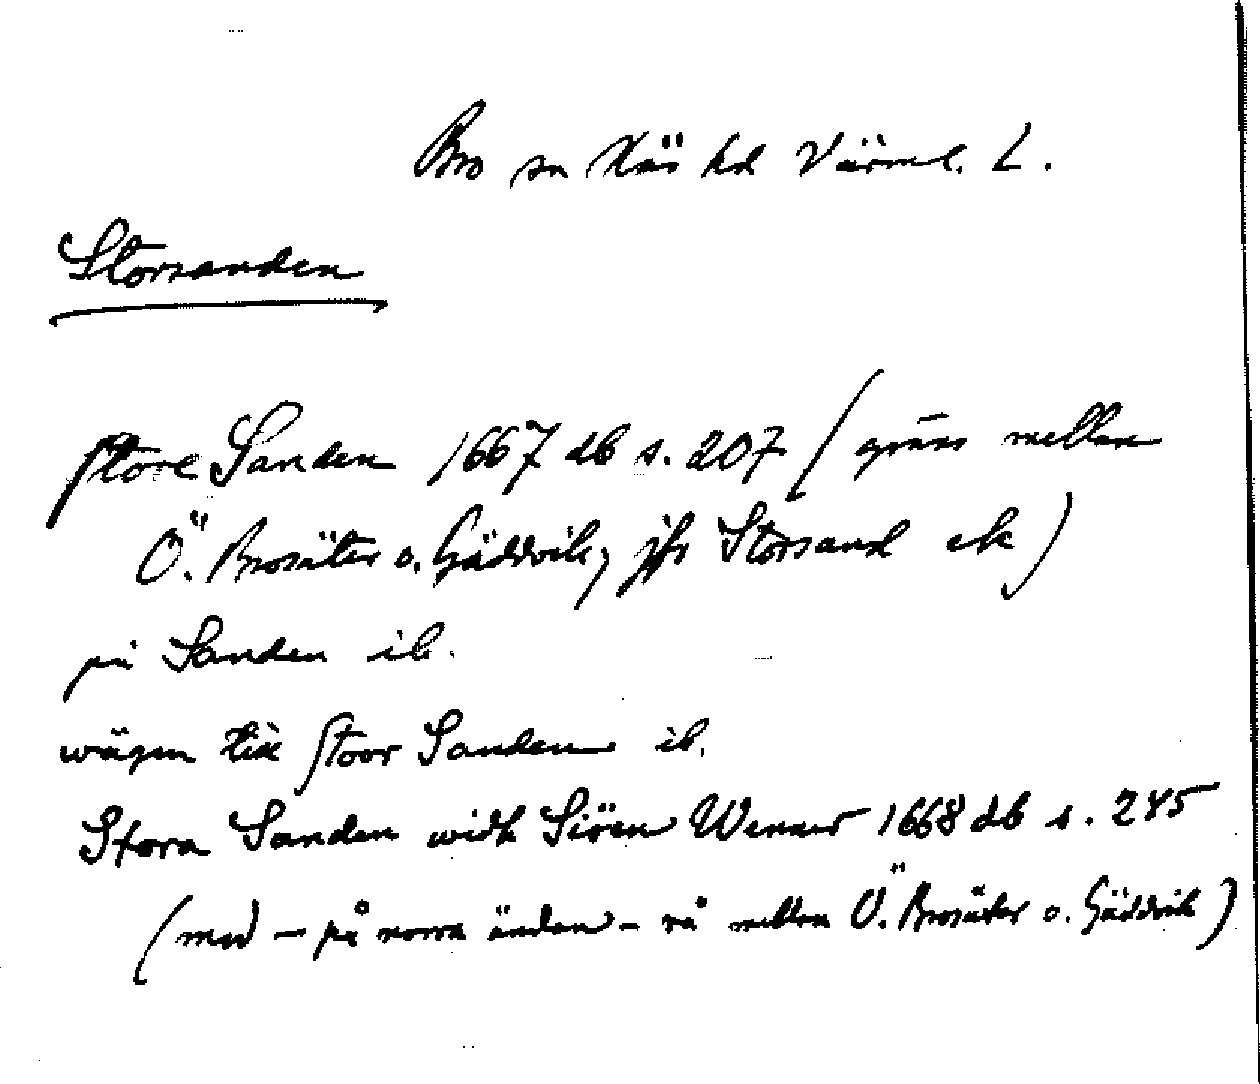 Bro sn Näs hd Värml. L.
Storsanden
store Sanden 1667 db s. 207 (gräns mellan
Ö. Brosäter o. Gäddvik, jfr Storsand ek)
på Sanden ib.
wägen till stoor Sanden ib.
Stora Sanden widh Siöen Wener 1668 db s. 245
(med – på norra ändan – rå mellan Ö. Brosäter o. Gäddvik)